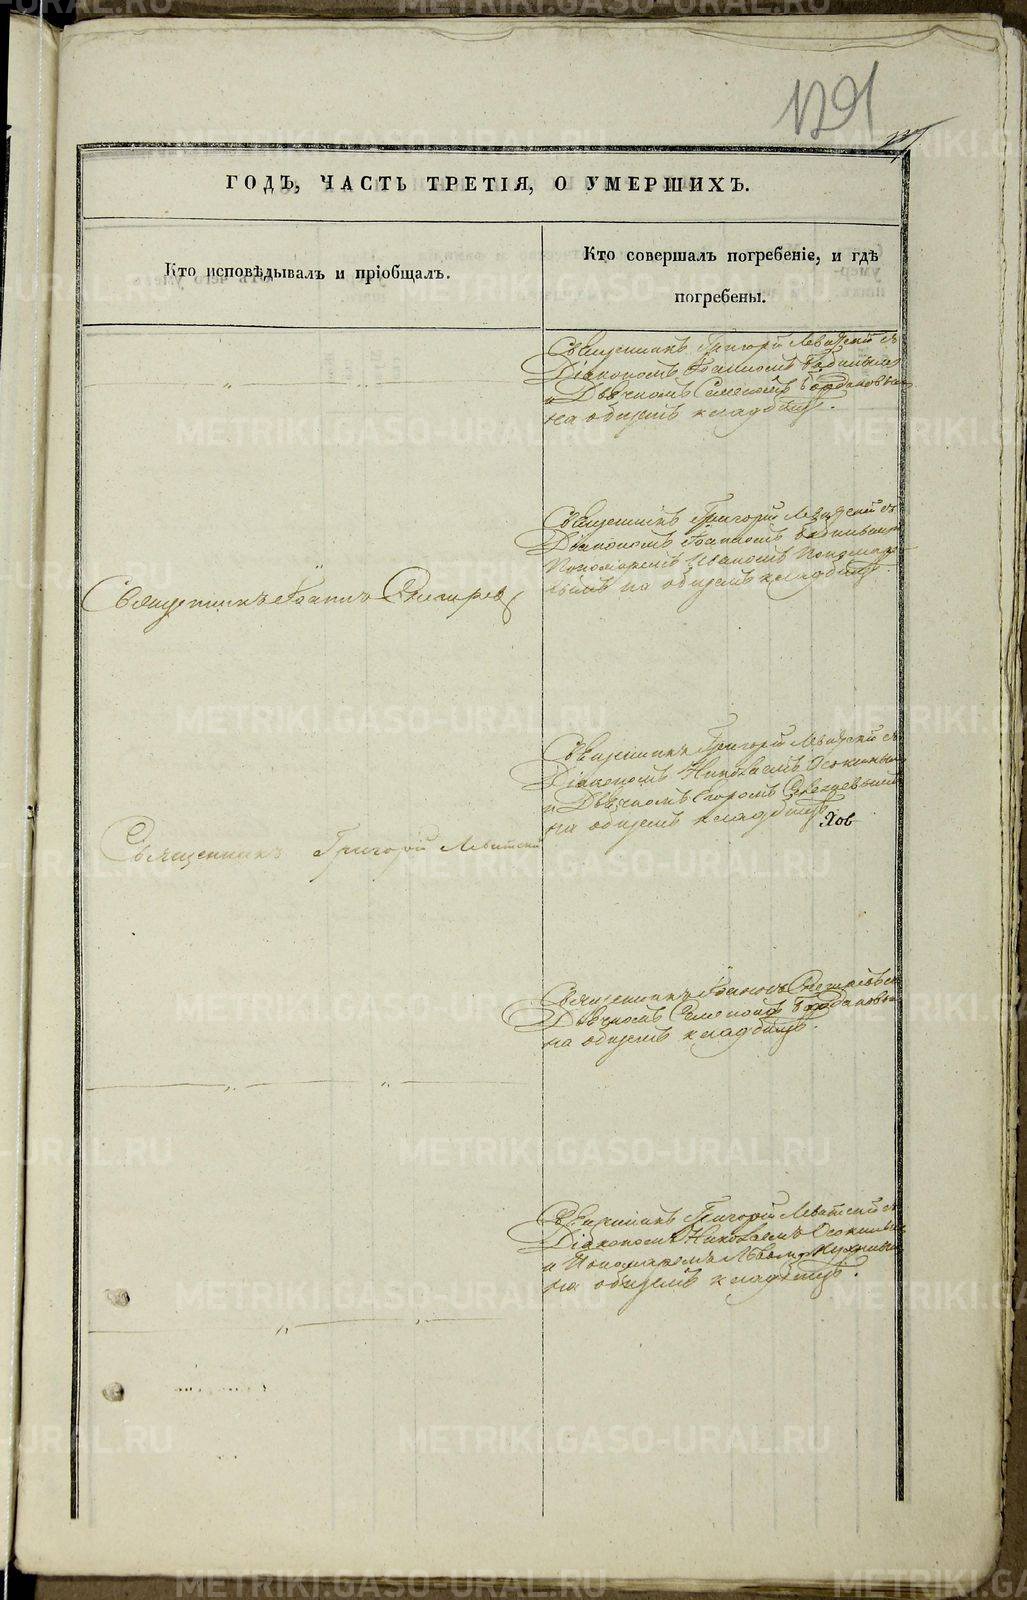 1291
ГОДЪ, ЧАСТЬ ТРЕТІЯ, О УМЕРШИХЪ.
Кто исповѣдывалъ и пріобщалъ.
Кто совершалъ погребеніе, и гдѣ
погребены.
Священникъ Григорій Левитскій съ
Діакономъ Іоанномъ
и Дьячкомъ Семеномъ Богдановымъ
на общемъ кладбищѣ.
Священникъ Григорій Левитскій съ
Діакономъ Іоанномъ
Пономаремъ Иваномъ Пономаре-
вымъ на общемъ кладбищѣ.
Священникъ Іоаннъ
Священникъ Григорій Левитскій съ
Діакономъ Николаемъ Осокинымъ
и Дьячкомъ Егоромъ
на общемъ кладбищѣ.
Священникъ Григорій Левитскій
Священникъ Іоаннъ съ
Дьячкомъ Семеномъ Богдановымъ
на общемъ кладбищѣ.
Священникъ Григорій Левитскій съ
Діакономъ Николаемъ Осокинымъ
и Пономаремъ
на общемъ кладбищѣ.
METRIKI.GASO-URAL.RU